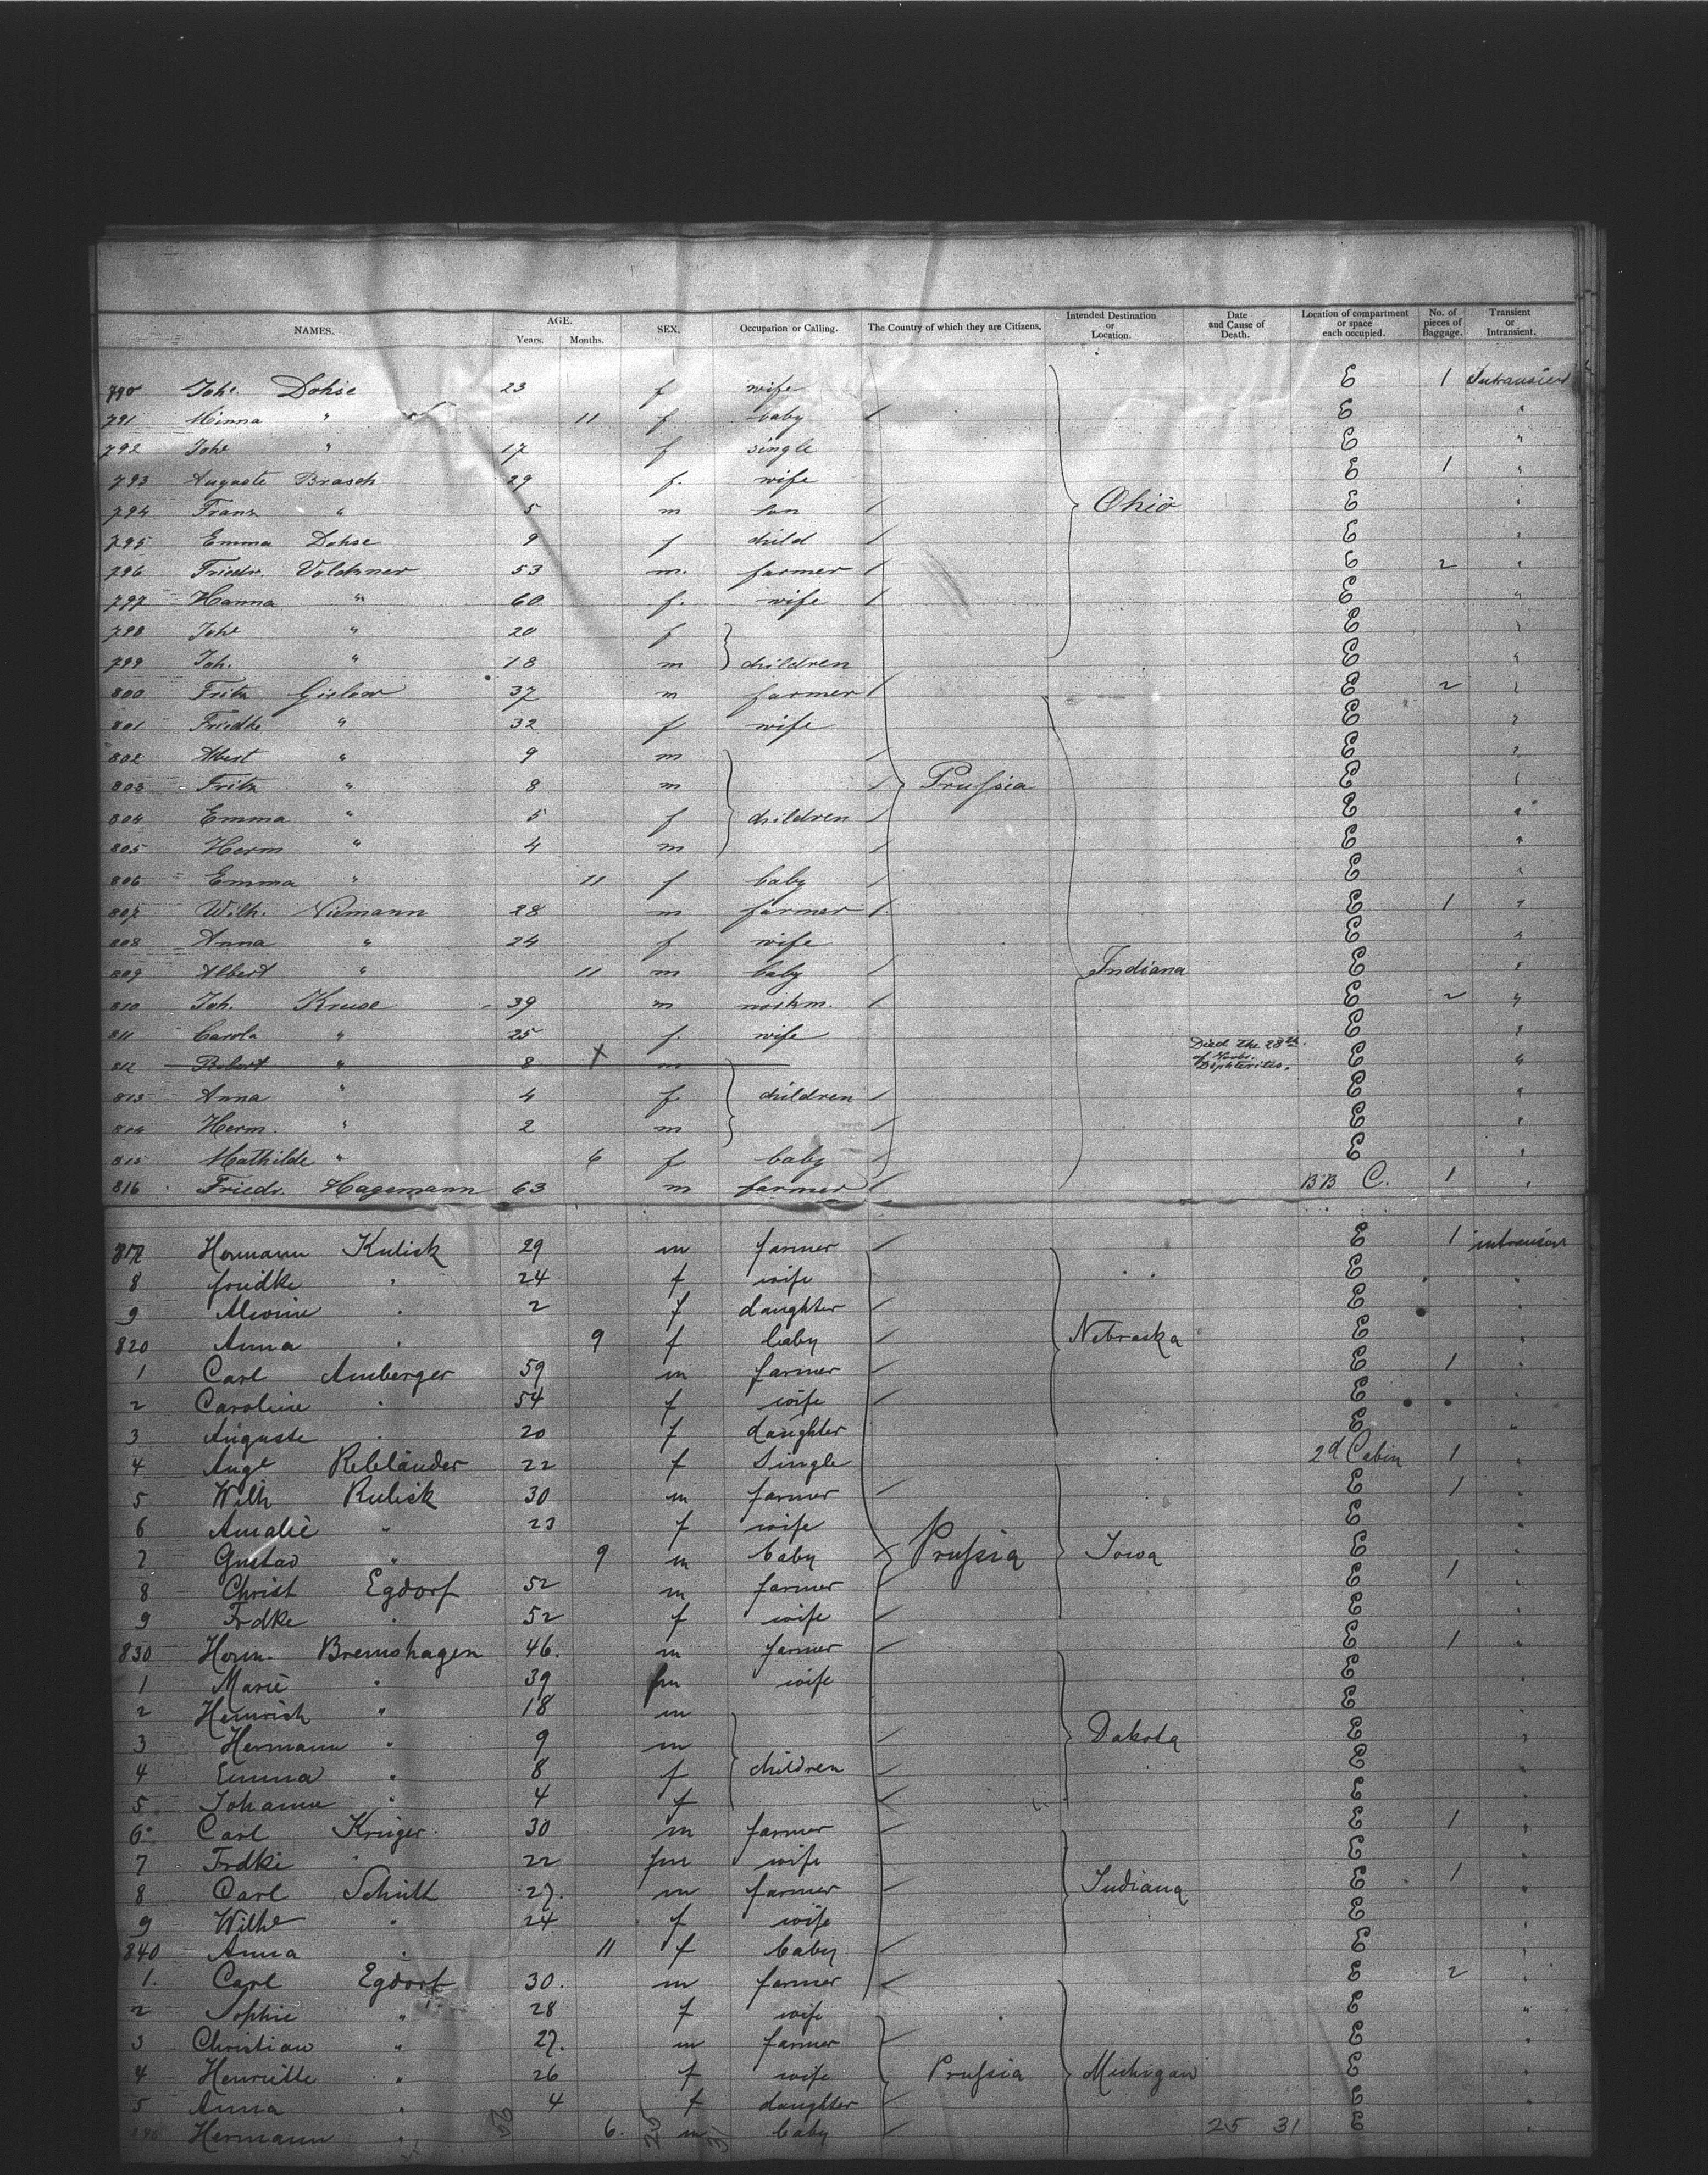 NAMES. AGE. Years. Months. SEX. Occupation or Calling. The Country of which they are Citizens. Intended Destination or Location. Date and Cause of Death. Location of compartment or space each occupied. No. of pieces of Baggage. Transient or Intransient.
790 Johe. Dohse 23 f wife E 1 Intransient
791 Minna " 11 f baby / E "
792 Johe " 17 f single E "
793 Auguste Brasch 29 f. wife E 1 "
794 Franz " 5 m son / Ohio E "
795 Emma Dohse 9 f child / E "
796 Friedr. Volckner 53 m. farmer / E 2 "
797 Hanna " 60 f. wife / E "
798 Johe " 20 f E "
799 Joh. " 18 m children E "
800 Fritz Gielow 37 m farmer / E 2 "
801 Friedke " 32 f wife E "
802 Albert " 9 m / E "
803 Fritz " 8 m / Prussia E "
804 Emma " 5 f children / E "
805 Herm " 4 m / E "
806 Emma " 11 f baby / E "
807 Wilh. Niemann 28 m farmer / E 1 "
808 Anna " 24 f wife E "
809 Albert " 11 m baby / Indiana E "
810 Joh. Kruse 39 m workm. / E 2 "
811 Carola " 25 f. wife E "
812 Robert " 8 x m Died the 28th of Novbr. Diphteritis. E "
813 Anna " 4 f children / E "
814 Herm. " 2 m / E "
815 Mathilde " 6 f baby / E "
816 Friedr. Hagemann 63 m farmer / BB C. 1 "
817 Hermann Kulisk 29 m farmer / E 1 intransient
8 friedke " 24 f wife E "
9 Alwine " 2 f daughter / E "
820 Anna " 9 f baby / Nebraska E "
1 Carl Amberger 59 m farmer / E 1 "
2 Caroline " 54 f wife / E "
3 Auguste " 20 f daughter E "
4 Auge Rebeländer 22 f Single 2d Cabin 1 "
5 Wilh Kulisk 30 m farmer / E 1 "
6 Amalie " 23 f wife E "
7 Gustav " 9 m baby / Prussia Iowa E "
8 Christ Egdorf 52 m farmer / E 1 "
9 Frdke " 52 f wife / E "
830 Herm. Bremshagen 46. m farmer / E 1 "
1 Marie " 39 f wife E "
2 Heinrich " 18 m E "
3 Hermann " 9 m / Dakota E "
4 Emma " 8 f children / E "
5 Johanne " 4 f / E "
6 Carl Krüger 30 m farmer / E 1 "
7 Frdke " 22 f wife E "
8 Carl Schult 27. m farmer / Indiana E 1 "
9 Wilhe " 24 f wife E "
840 Anna " 11 f baby / E "
1. Carl Egdorf 30. m farmer / E 2 "
2 Sophie " 28 f wife E "
3 Christian " 27. m farmer / E "
4 Henriette " 26 f wife Prussia Michigan E "
5 Anna " 4 f daughter / E "
846 Hermann " 6. m baby / 25 31 E "